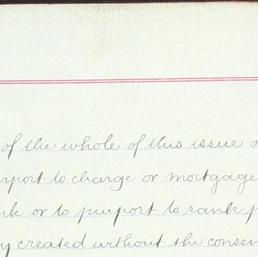 of the whole of this issue
to charge or mortgage
or to purport to rank
created without the